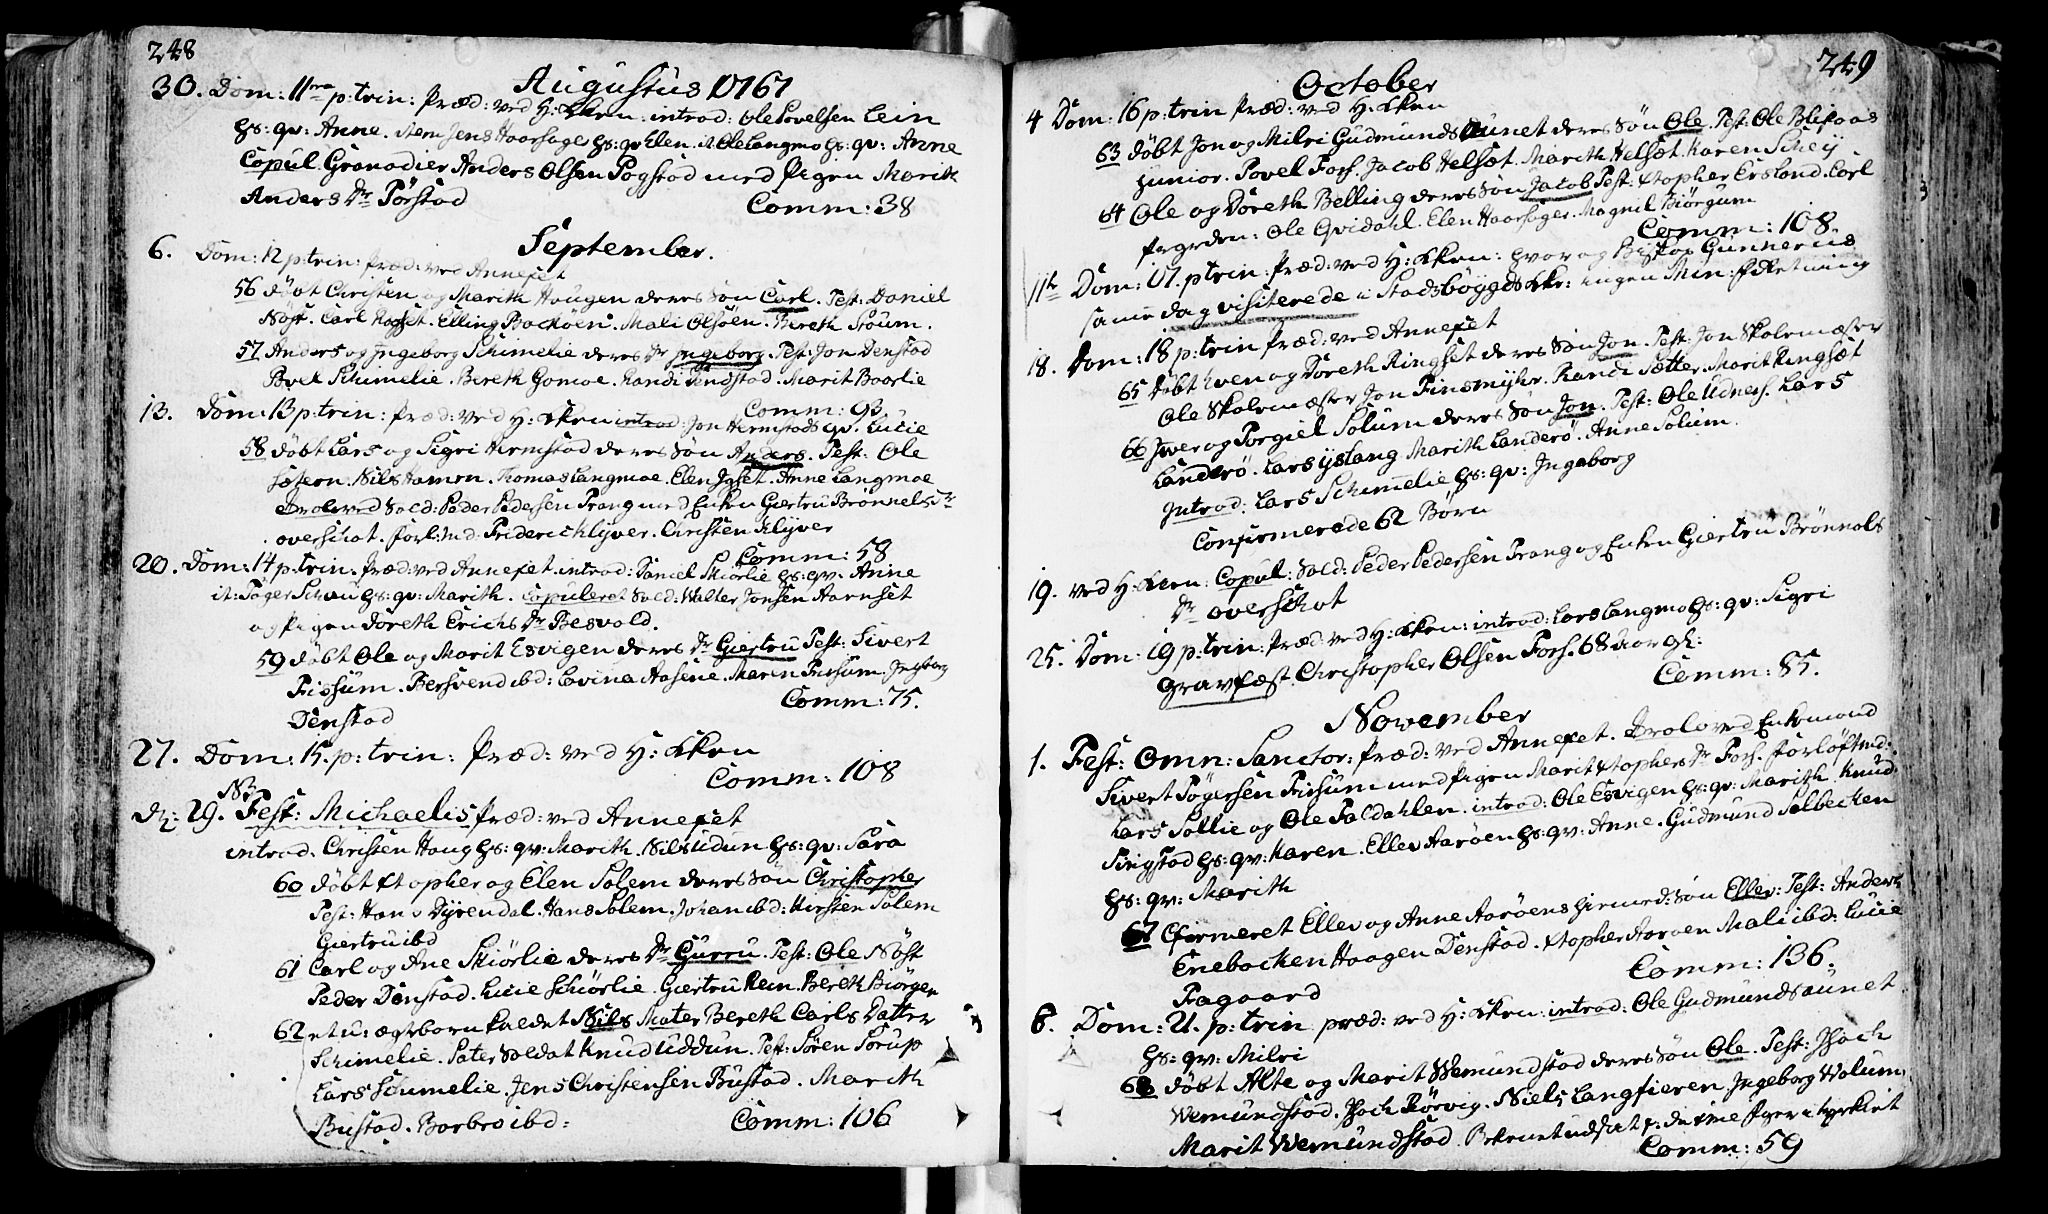 248
Augustus 1767
30. Dom: 11ma p: trin: Præd: ved H: Kken: introd: Ole Povelsen Lein
hs: qv: Anne. Item Jens Haarsager hs: qv Elen. it Ole Langmo hs: qv: Anne
Copul Granadier Anders Olsen Pogstad med Pigen Marith
Anders Dr Pørstad
Comm: 38
September.
6. Dom: 12 p: trin: Præd: ved Annexet
56 døbt Christen og Marith Haugen deres Søn Carl. Test: Daniel
Nøst. Carl Rogset. Elling Backøen. Mali Olsøen. Bereth Stoum.
57 Anders og Ingeborg Schimelie deres Dr Ingeborg. Test: Jon Denstad
Povel Schimelie. Bereth Gomoe. Randi Denstad. Marit Baarlie
Comm: 93
13. Dom: 13 p: trin: Præd: ved H: Kken introd: Jon Hermstad qv: Lucie
58 døbt Lars og Sigri Hermstad deres Søn Anders. Test: Ole
Sætern. Nils Hamrn. Thomas Langmoe. Elen Igset. Anne Langmoe
Troloved Sold: Peder Pedersen Prang med Enken Giertru Brønnelsdr
overschot. forl: md: Friderich Klyver. Christen Klyver
Comm: 58
20. Dom: 14 p: trin. Præd: ved Annexet. introd: Daniel Skiørlie hs: qv: Anne
it: Tøger Schau hs: qv: Marith. Copuleret Sold: Walter Jonsen Aarnset
og Pigen Doreth Erichs Dr Besvold.
59 døbt Ole og Marit Esvigen deres Dr Giertru Test: Sivert
Frissum. Bersvend ibd: Lovina Aasene. Maren Frissum. Ingborg
Denstad
Comm: 75.
27. Dom: 15. p: trin: Præd: ved H: Kken
Comm: 108
NB
d: 29. Fest: Michaelis Præd: ved Annexet
introd. Christen Haug hs: qv: Marith. Nils Udun hs: qv: Sara
60 døbt Xtopher og Elen Solem deres Søn Christopher
Test: Hans Dyrendal. Hans Solem. Johan ibd: Kirsten Solem
Giertru ibd
61 Carl og Ane Skiørlie deres Dr Gurru. Test: Ole Nøst
Peder Denstad. Lucie Schiørlie. Giertru Rein. Bereth Biørgen
62 et u: ægt born kaldet Nils Mater Bereth Carls Datter
Schimelie. Pater Soldat Knud Uddun. Test: Søren Sørup
Lars Schimelie. Jens Christensen Bustad. Marith
Bustad. Barbro ibd:
Comm: 106
249
October
4 Dom: 16 p: trin Præd: ved H: Kken
63 døbt Jon og Milri Gudmundsaunet deres Søn Ole. Test: Ole Blixaas
junior. Povel Fors. Jacob Helset. Marith Helset. Karen Schey
64 Ole og Doreth Belling deres Søn Jacob Test: Xtopher Ersland. Carl
fergeden: Ole Qvidahl. Elen Haarsager. Magnil Biørgum
Comm: 108
11te Dom: 17. p: trin: Præd: ved H: Kken: hvor og Biskop Gunnerus
samme dag visiterede i Stadsbøygds Kke: ingen Min: forretning
18. Dom: 18 p: trin Præd: ved Annexet
65 døbt Even og Doreth Ringset deres Søn Jon. Test: Jon Skolemester
Ole Skolemester Jon Finsmyhr. Randi Sætter. Marit Ringset
66 Iver og Torgiel Solum deres Søn Jon. Test: Ole Udnes. Lars
Landerø. Lars yslang Marith Landerø. Anne Solum.
Introd: Lars Schimelie hs: qv: Ingeborg
Confirmerede 62 Børn
19. ved H: Kken: Copul: Sold: Peder Pedersen Prang og Enken Giertru Brønnels
Dr overschot
25. Dom: 19 p: trin: Præd: ved H: Kken: introd: Lars Langmo hs: qv: Sigri
gravfæst Christopher Olsen Fors. 68 aar gl:
Comm: 85.
November
1. Fest: Omn: Sanctor: Præd: ved Annexet. Trolovved Enkemand
Sivert Tøgersen Frissum med Pigen Marit Xtophers Dr Fors. forløftmd:
Lars Sollie og Ole Foldahlen. introd: Ole Esvigen hs: qv: Marith Knud
Singstad hs: qv: Karen. Ellev Aarøen hs: qv: Anne. Gudmund Solbecken
hs: qv: Marith
67 Cfirmeret Ellev og Anne Aarøens hiemed: Søn Ellev: Test: Anders
Enebacken Haagen Denstad. Xtopher Aarøen Mali ibd: Lucie
Fagaard
Comm: 136.
8. Dom: 21. p: trin præd: ved H: Kken: introd: Ole Gudmundsaunet
hs: qv: Milri
68 døbt Alte og Marit Wemundstad deres Søn Ole. Test: Isach
Wemundstad. Isach Rørvig. Niels Langfieren. Ingeborg Wolum,
Marit Wemundstad.
Comm: 59